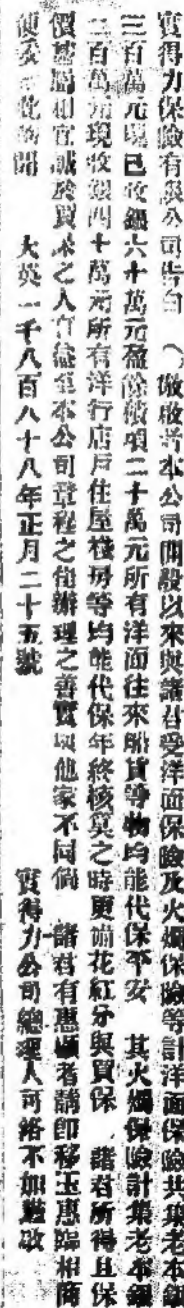 寶得力保險有限公司告白　啟者本公司開設以來與諸君受洋面保險及火燭保險等計洋面保險共集老本銀
三百萬元現已收銀六十萬元盈餘積項二十萬元所有洋面往來船貨等物均能代保平安　其火燭保險計集老本銀
二百萬元現收銀四十萬元所有洋行店戶住屋棧房等均能代保年終核算之時更有花紅分與買保　諸君所得且保
價甚屬相宜誠於買保之人有益至本公司章程之佳辦理之善實與他家不同倘　諸君有惠顧者請即移玉惠臨相商
便妥　大英一千八百八十八年正月二十五號　寶得力公司總理人可絡不如啟